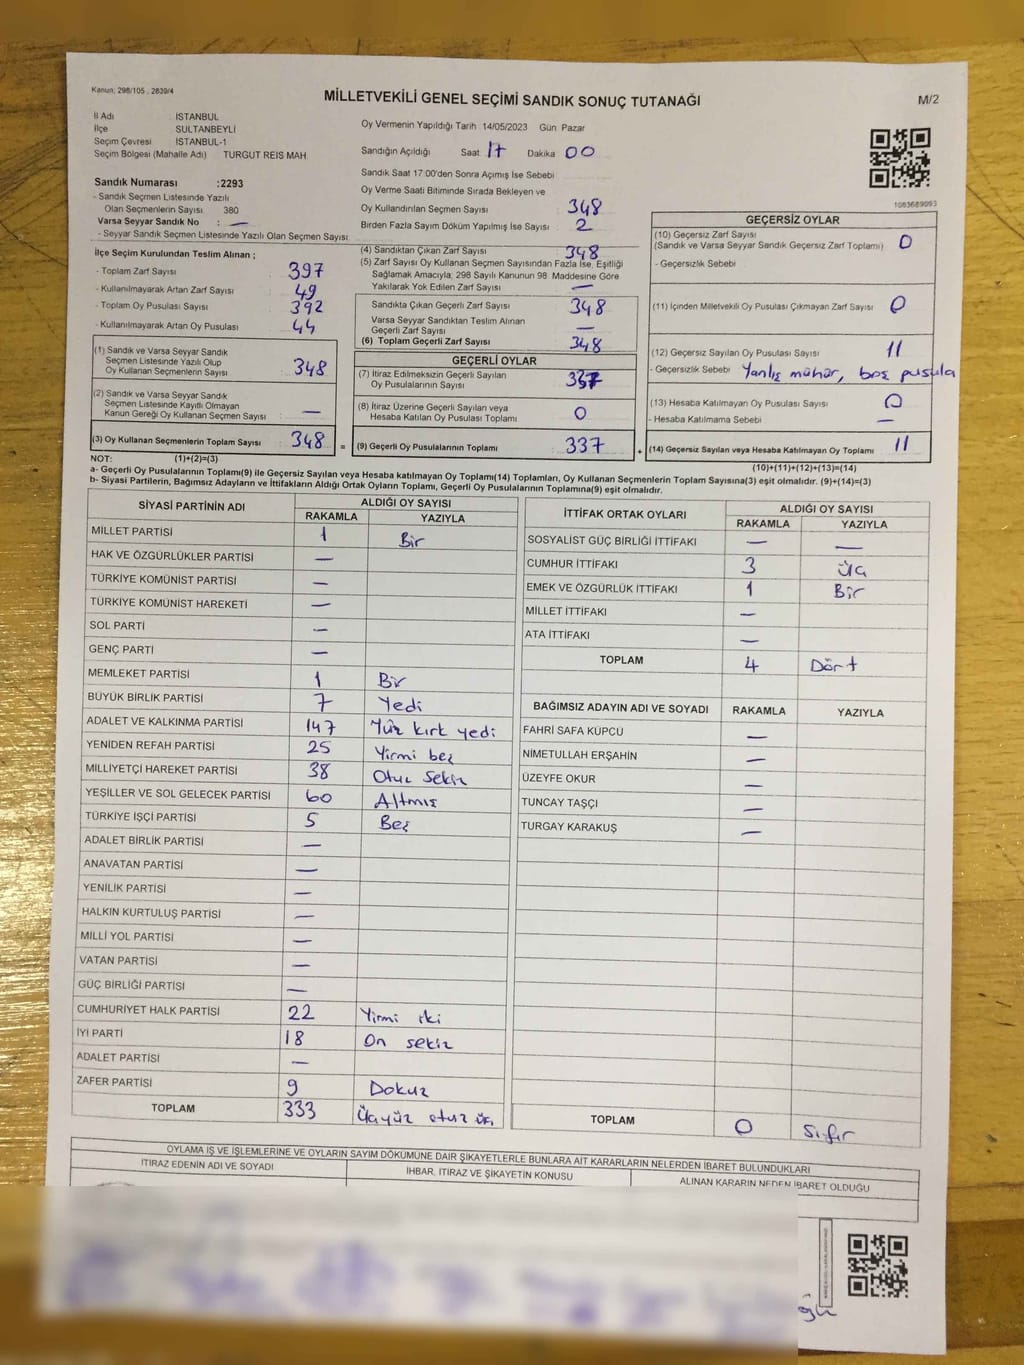 Kanun; 298/105 , 2839/4
MİLLETVEKİLİ GENEL SEÇİMİ SANDIK SONUÇ TUTANAĞI
M/2
İl Adı : İSTANBUL
İlçe SULTANBEYLİ
Seçim Çevresi : İSTANBUL-1
Seçim Bölgesi (Mahalle Adı) TURGUT REIS MAH
Sandık Numarası :2293
- Sandık Seçmen Listesinde Yazılı
Olan Seçmenlerin Sayısı 380
Varsa Seyyar Sandık No : —
- Seyyar Sandık Seçmen Listesinde Yazılı Olan Seçmen Sayısı:
İlçe Seçim Kurulundan Teslim Alınan ;
- Toplam Zarf Sayısı 397
- Kullanılmayarak Artan Zarf Sayısı 49
- Toplam Oy Pusulası Sayısı 392
- Kullanılmayarak Artan Oy Pusulası 44
(1) Sandık ve Varsa Seyyar Sandık
Seçmen Listesinde Yazılı Olup
Oy Kullanan Seçmenlerin Sayısı : 348
(2) Sandık ve Varsa Seyyar Sandık
Seçmen Listesinde Kayıtlı Olmayan
Kanun Gereği Oy Kullanan Seçmen Sayısı : —
(3) Oy Kullanan Seçmenlerin Toplam Sayısı 348 =
Oy Vermenin Yapıldığı Tarih 14/05/2023 Gün Pazar
Sandığın Açıldığı Saat 17 Dakika 00
Sandık Saat 17:00'den Sonra Açımış İse Sebebi
Oy Verme Saati Bitiminde Sırada Bekleyen ve
Oy Kullandırılan Seçmen Sayısı 348
Birden Fazla Sayım Döküm Yapılmış İse Sayısı : 2
(4) Sandıktan Çıkan Zarf Sayısı 348
(5) Zarf Sayısı Oy Kullanan Seçmen Sayısından Fazla İse, Eşitliği
Sağlamak Amacıyla, 298 Sayılı Kanunun 98 Maddesine Göre
Yakılarak Yok Edilen Zarf Sayısı —
Sandıkta Çıkan Geçerli Zarf Sayısı 348
Varsa Seyyar Sandıktan Teslim Alınan
Geçerli Zarf Sayısı —
(6) Toplam Geçerli Zarf Sayısı 348
GEÇERLİ OYLAR
(7) İtiraz Edilmeksizin Geçerli Sayılan
Oy Pusulalarının Sayısı 337
(8) İtiraz Üzerine Geçerli Sayılan veya
Hesaba Katılan Oy Pusulası Toplamı 0
(9) Geçerli Oy Pusulalarının Toplamı 337 +
1083689093
GEÇERSİZ OYLAR
(10) Geçersiz Zarf Sayısı
(Sandık ve Varsa Seyyar Sandık Geçersiz Zarf Toplamı) 0
- Geçersizlik Sebebi
(11) İçinden Milletvekili Oy Pusulası Çıkmayan Zarf Sayısı 0
(12) Geçersiz Sayılan Oy Pusulası Sayısı 11
- Geçersizlik Sebebi Yanlış mühür, boş pusula
(13) Hesaba Katılmayan Oy Pusulası Sayısı 0
- Hesaba Katılmama Sebebi —
(14) Geçersiz Sayılan veya Hesaba Katılmayan Oy Toplamı 11
NOT: (1)+(2)=(3) (10)+(11)+(12)+(13)=(14)
a- Geçerli Oy Pusulalarının Toplamı(9) ile Geçersiz Sayılan veya Hesaba katılmayan Oy Toplamı(14) Toplamları, Oy Kullanan Seçmenlerin Toplam Sayısına(3) eşit olmalıdır. (9)+(14)=(3)
b- Siyasi Partilerin, Bağımsız Adayların ve İttifakların Aldığı Ortak Oyların Toplamı, Geçerli Oy Pusulalarının Toplamına(9) eşit olmalıdır.
SİYASİ PARTİNİN ADI ALDIĞI OY SAYISI
RAKAMLA YAZIYLA
MİLLET PARTİSİ 1 Bir
HAK VE ÖZGÜRLÜKLER PARTİSİ —
TÜRKİYE KOMÜNİST PARTİSİ —
TÜRKİYE KOMÜNİST HAREKETİ —
SOL PARTİ —
GENÇ PARTİ —
MEMLEKET PARTİSİ 1 Bir
BÜYÜK BİRLİK PARTİSİ 7 Yedi
ADALET VE KALKINMA PARTİSİ 147 Yüz kırk yedi
YENİDEN REFAH PARTİSİ 25 Yirmi beş
MİLLİYETÇİ HAREKET PARTİSİ 38 Otuz sekiz
YEŞİLLER VE SOL GELECEK PARTİSİ 60 Altmış
TÜRKİYE İŞÇİ PARTİSİ 5 Beş
ADALET BİRLİK PARTİSİ —
ANAVATAN PARTİSİ —
YENİLİK PARTİSİ —
HALKIN KURTULUŞ PARTİSİ —
MİLLİ YOL PARTİSİ —
VATAN PARTİSİ —
GÜÇ BİRLİĞİ PARTİSİ —
CUMHURİYET HALK PARTİSİ 22 Yirmi iki
İYİ PARTİ 18 On sekiz
ADALET PARTİSİ —
ZAFER PARTİSİ 9 Dokuz
TOPLAM 333 Üçyüz otuz üç
İTTİFAK ORTAK OYLARI ALDIĞI OY SAYISI
RAKAMLA YAZIYLA
SOSYALİST GÜÇ BİRLİĞİ İTTİFAKI — —
CUMHUR İTTİFAKI 3 Üç
EMEK VE ÖZGÜRLÜK İTTİFAKI 1 Bir
MİLLET İTTİFAKI —
ATA İTTİFAKI —
TOPLAM 4 Dört
BAĞIMSIZ ADAYIN ADI VE SOYADI RAKAMLA YAZIYLA
FAHRİ SAFA KÜPCÜ —
NİMETULLAH ERŞAHİN —
ÜZEYFE OKUR —
TUNCAY TAŞÇI —
TURGAY KARAKUŞ —
TOPLAM 0 Sıfır
OYLAMA İŞ VE İŞLEMLERİNE VE OYLARIN SAYIM DÖKÜMÜNE DAİR ŞİKAYETLERLE BUNLARA AİT KARARLARIN NELERDEN İBARET BULUNDUKLARI
İTİRAZ EDENİN ADI VE SOYADI İHBAR, İTİRAZ VE ŞİKAYETİN KONUSU ALINAN KARARIN NEDEN İBARET OLDUĞU